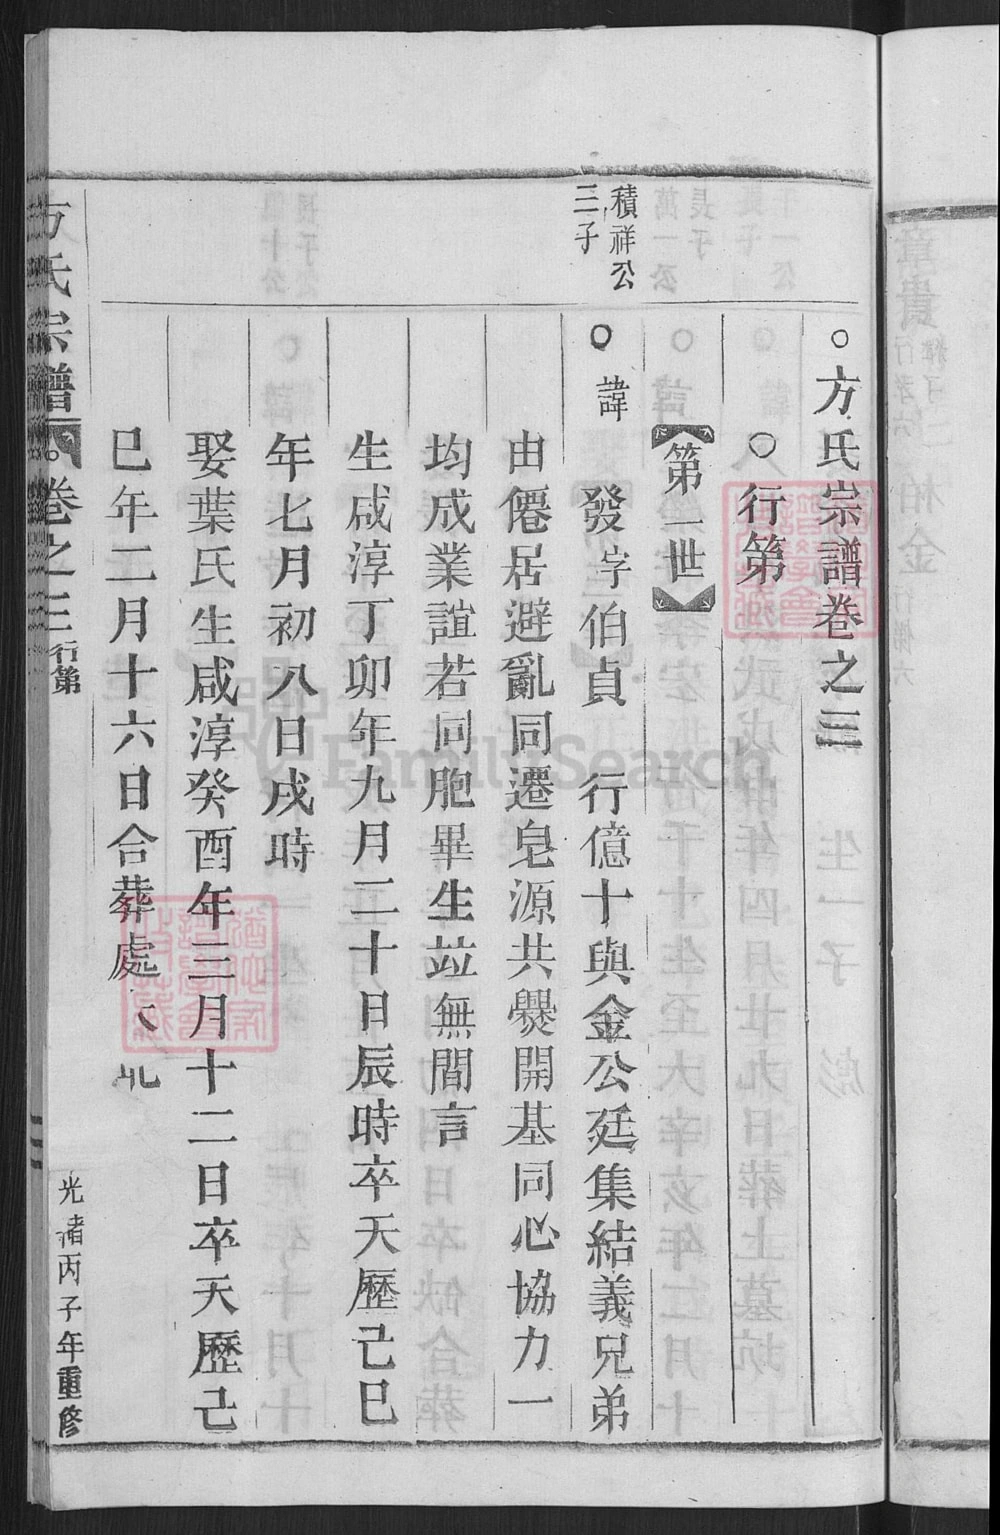 ○方氏宗譜卷之三
○行第
第一世
積祥公
三子
○諱發字伯貞 行億十與金公廷集結義兄弟
由僊居避亂同遷皂源共爨開基同心協力一
均成業誼若同胞畢生竝無間言
生咸淳丁卯年九月二十日辰時卒天歷己巳
年七月初八日戌時
娶葉氏生咸淳癸酉年三月十二日卒天歷己
巳年二月十六日合葬處
方氏宗譜 卷之三 行第 光緒丙子年重修
FamilySearch